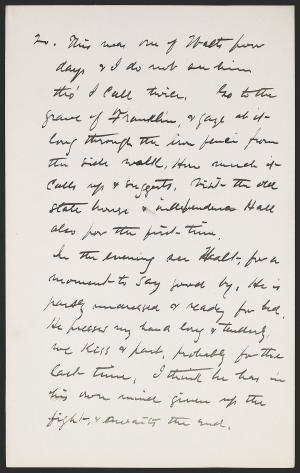 20. This was one of Walts poor
days & I do not see him
tho' I call twice. Go to the
grave of Franklin, & gaze at it
long through the iron fence from
the side walk. How much it
calls up & suggests. Visit the old
state house & independence Hall
also for the first time.
In the evening see Walt, for a
moment to say good by. He is
partly undressed & ready for bed.
He presses my hand long & tenderly,
we kiss & part, probably for the
last time. I think he has in
his own mind given up the
fight, & awaits the end.